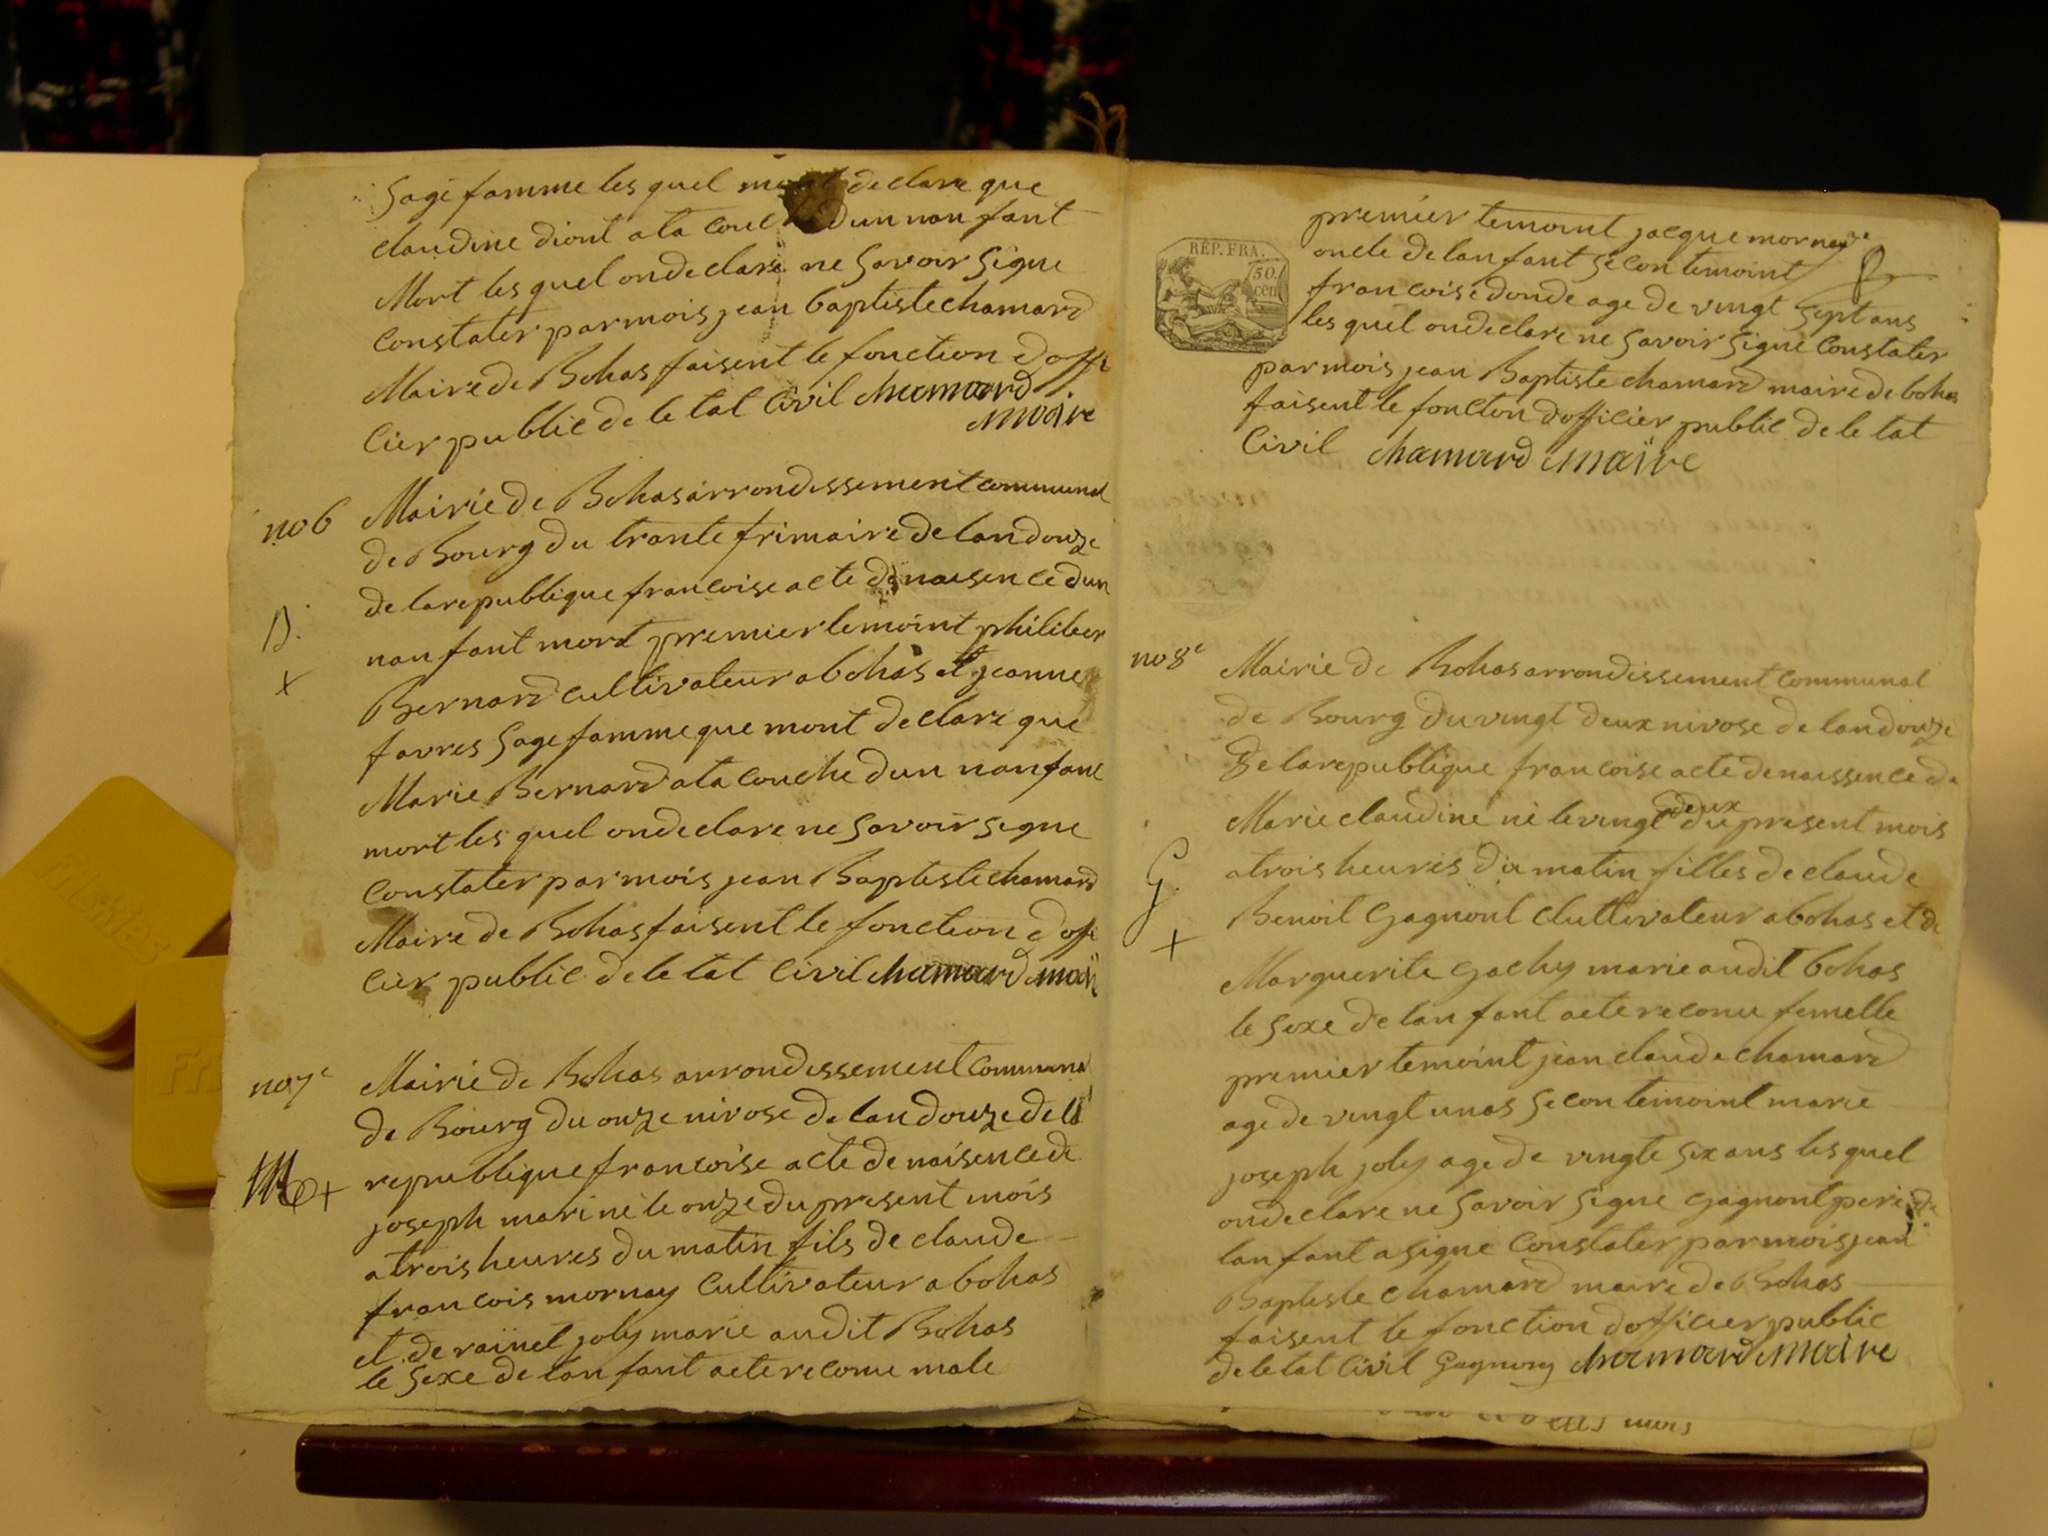 Sage famme les quel declare que
claudine diont ata couche dun nan fant
Mort les quel ondeclare ne Savoir Signe
Constater par mois jean baptiste chamard
Maire de Bohas faisent le fonction doffi
cier public de le tat Civil chamard
maire
no 6 Mairie de Bohas arrondissement communal
de Bourg du trante frimaire de lan douze
de la republique francoise acte de naisence dun
nan fant mort premier temoint philiber
B.
+
Bernard cultivateur a bohas et jeanne
favres Sage famme que mont declare que
Marie Bernard ata couche dun nan fant
mort les quel ondeclare ne Savoir Segne
Constater par mois jean Baptiste chamard
Maire de Bohas faisent le fonction doffi
cier public de le tat Civil chamard mair
no 7e Mairie de Bohas arrondissement Communal
de Bourg du onze nivose de lan douze de la
republique francoise acte de naisence de
M +
joseph mari né le onze du present mois
a trois heures du matin fils de claude
francois mornay Cultivateur a bohas
et de rainet joly marie audit Bohas
le Sexe de lan fant aete reconu male
premier temoint jacque mornay
oncle de lan fant Secon temoint
francoise donde age de vingt Sept ans
les quel ondeclare ne Savoir Signe Constater
RÉP. FRA.
50.
cen
par mois jean Baptiste chamard maire de bohas
faisent le foncton dofficier public de le tat
Civil chamard maire
no 8e Mairie de Bohas arrondissement communal
de Bourg du vingt deux nivose de lan douze
de la republique francoise acte de naissence de
Marie claudine né le vingt deux du present mois
a trois heures du matin filles de claude
G.
+
Benoit Gagnont Cluttivateur a bohas et de
Marguerite Gachy marie audit bohas
le Sexe de lan fant aete reconu femelle
premier temoint jean claude chamard
age de vingt unas Secon temoint marie
joseph joly age de vingte Six ans les quel
ondeclare ne Savoir Signe Gagnont pere de
lan fant a signe Constater par mois jean
Baptiste Chamard maire de Bohas
faisent le fonction dofficier public
de le tat Civil Gagnon chamard maire